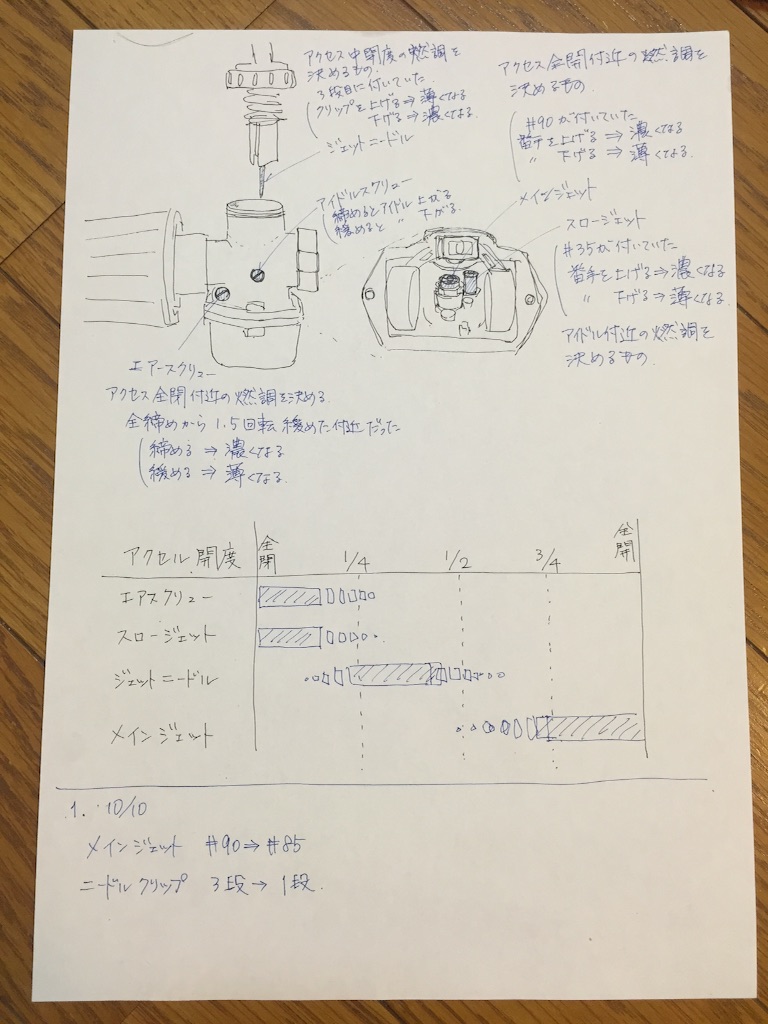 アクセス中開度の燃調を
決めるもの.
3段目に付いていた.
クリップを上げる⇒薄くなる
下げる⇒濃くなる
ジェットニードル
アイドルスクリュー
締めるとアイドル上がる
緩めると 〃 下がる.
アクセス全開付近の燃調を
決めるもの.
#90が付いていた
番手を上げる⇒濃くなる
〃 下げる⇒薄くなる.
メインジェット
スロージェット
#35が付いていた
番手を上げる⇒濃くなる
〃 下げる⇒薄くなる.
アイドル付近の燃調を
決めるもの.
エアースクリュー
アクセス全閉付近の燃調を決める.
全締めから1.5回転緩めた付近だった
締める⇒濃くなる
緩める⇒薄くなる.
アクセル開度 全閉 1/4 1/2 3/4 全開
エアスクリュー
スロージェット
ジェットニードル
メインジェット
1. 10/10
メインジェット #90⇒#85
ニードルクリップ 3段→1段.